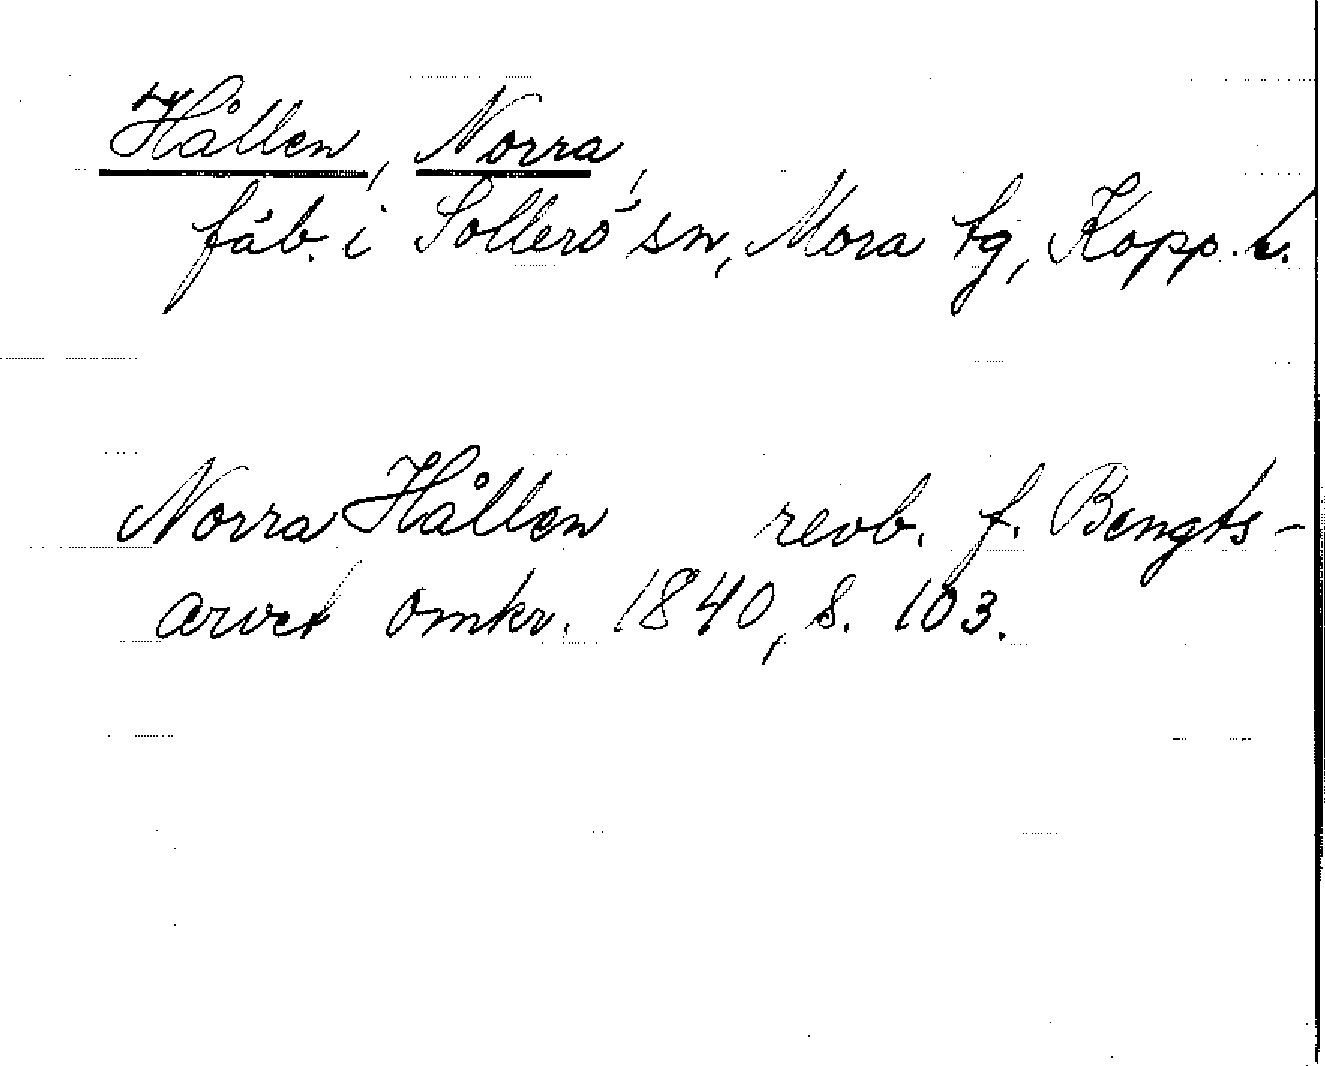 Hållen, Norra,
fäb. i Sollerö sn, Mora tg, Kopp. l.
Norra Hållen revb. f. Bengts-
arvet omkr. 1840, s. 103.